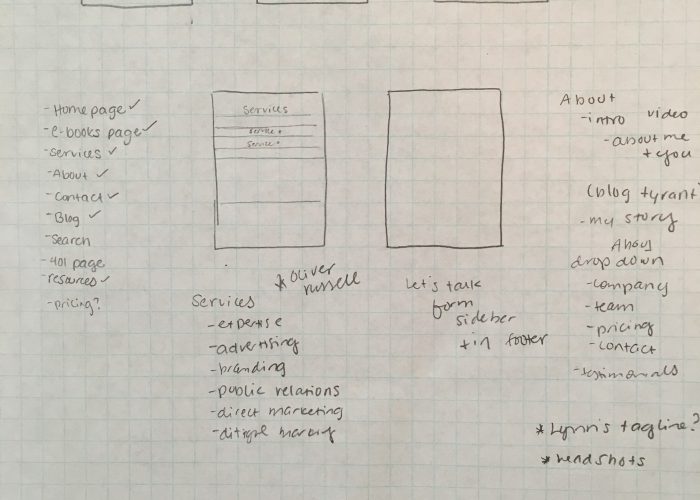 -Homepage ✓
-e-books page ✓
-services ✓
-About ✓
-Contact ✓
-Blog ✓
-Search
-401 page
-resources ✓
-pricing?
Services
Service
Service
*Oliver
russell
Services
-expertise
-advertising
-branding
-public relations
-direct marketing
Let's talk
form
sidebar
+ in footer
About
-intro video
-about me
+ you
(blog tyrant
-my story
drop down
-company
-team
-pricing
-contact
-testimonials
*Lynn's tagline?
*headshots